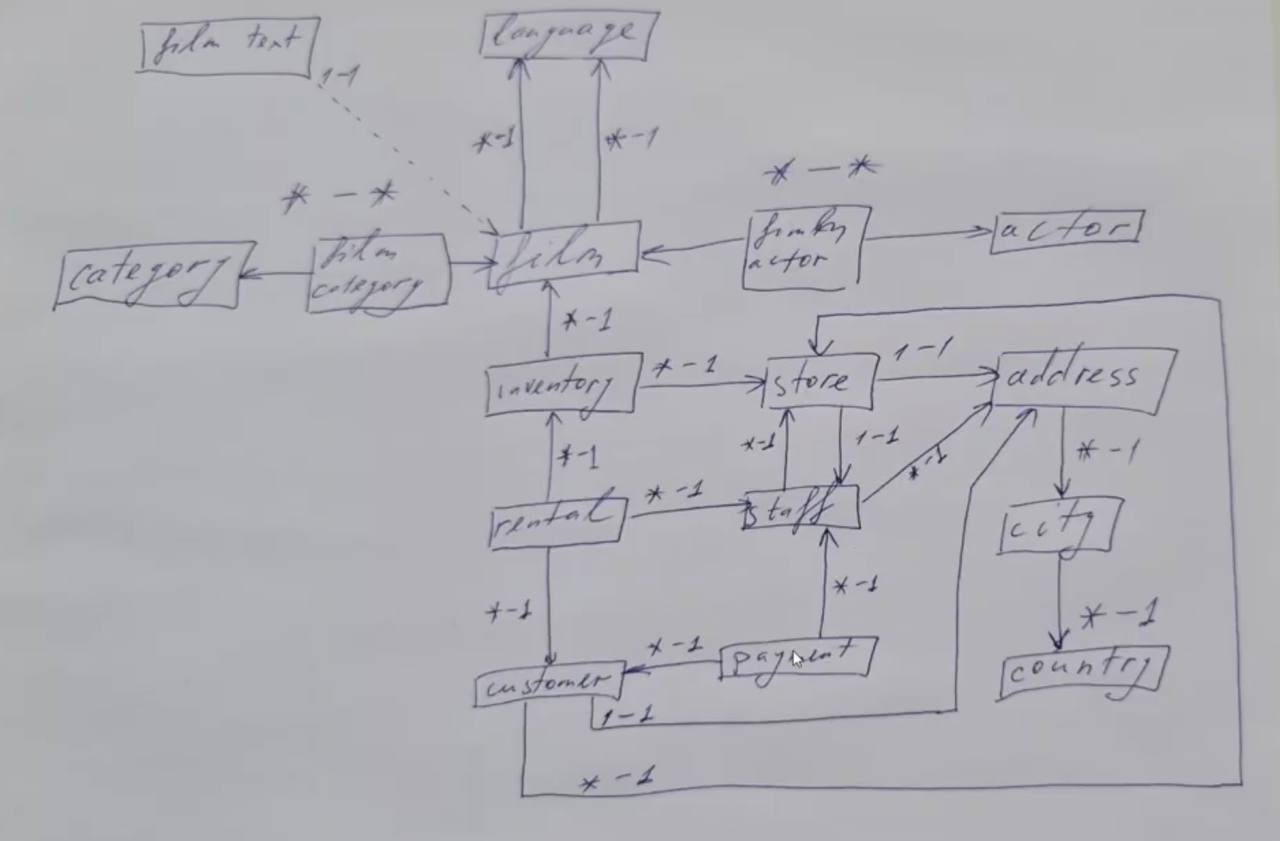 film text
language
1-1
*-1
*-1
* - *
* - *
category
film
category
film
actor
actor
*-1
inventory
*-1
store
1-1
address
*-1
*-1
1-1
*-1
*-1
rental
*-1
staff
city
*-1
*-1
*-1
customer
*-1
payment
country
1-1
*-1